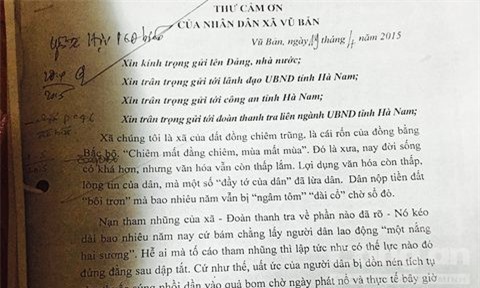 THƯ CẢM ƠN
CỦA NHÂN DÂN XÃ VŨ BẢN
Vũ Bản, ngày 19 tháng năm 2015
Xin kính trọng gửi lên Đảng, nhà nước;
Xin trân trọng gửi tới lãnh đạo UBND tỉnh Hà Nam;
Xin trân trọng gửi tới công an tỉnh Hà Nam;
Xin trân trọng gửi tới đoàn thanh tra liên ngành UBND tỉnh Hà Nam;
Xã chúng tôi là xã của đất đồng chiêm trũng, là cái rốn của đồng bằng
Bắc bộ "Chiêm mất đằng chiêm, mùa mất mùa". Đó là xưa, nay đời sống
có khá hơn, nhưng văn hóa vẫn còn thấp lắm. Lợi dụng văn hóa còn thấp,
lòng tin của dân, mà một số "đầy tớ của dân" đã lừa dân. Dân nộp tiền đất
"bôi trơn" mà bao nhiêu năm vẫn bị "ngâm tôm" "dài cổ" chờ sổ đỏ.
Nạn tham nhũng của xã - Đoàn thanh tra về phần nào đã rõ - Nó kéo
dài bao nhiêu năm nay cứ bám chằng lấy người dân lao động "một nắng
hai sương". Hễ ai mà tố cáo tham nhũng thì lập tức như có thế lực nào đó
đứng đằng sau dập tắt. Cứ như thế, uất ức của người dân bị dồn nén tích tụ
sủng nhồi dần vào quả bom chờ ngày phát nổ và thực tế bây giờ